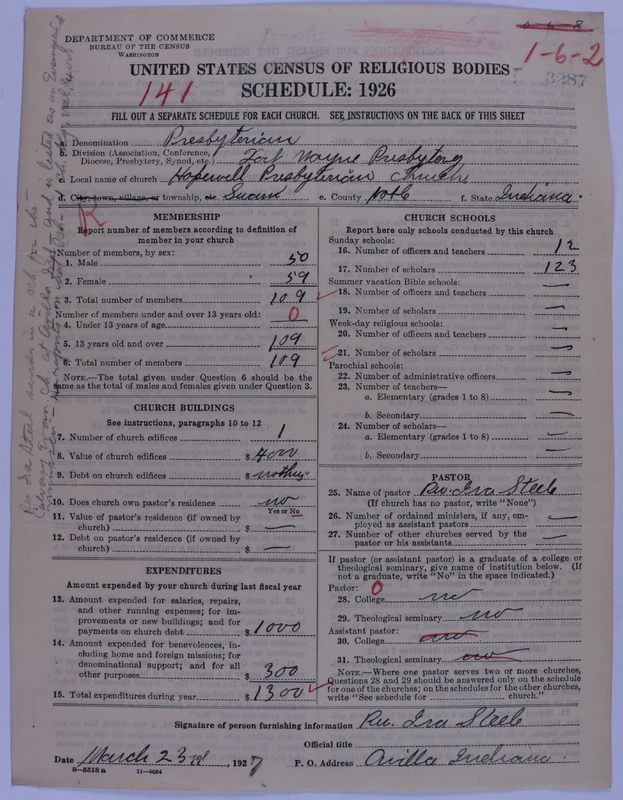 0-6-8
DEPARTMENT OF COMMERCE
BUREAU OF THE CENSUS
WASHINGTON
1-6-2
3287
UNITED STATES CENSUS OF RELIGIOUS BODIES
141
SCHEDULE: 1926
FILL OUT A SEPARATE SCHEDULE FOR EACH CHURCH. SEE INSTRUCTIONS ON THE BACK OF THIS SHEET
a. Denomination Presbyterian
b. Division (Association, Conference, Diocese, Presbytery, Synod, etc.) Fort Wayne Presbytery
c. Local name of church Hopewell Presbyterian Church
d. City, town, village, or township, etc. Swan e. County Noble f. State Indiana.
R
MEMBERSHIP
Report number of members according to definition of member in your church
Number of members, by sex:
1. Male 50
2. Female 59
3. Total number of members 109
Number of members under and over 13 years old:
4. Under 13 years of age 0
5. 13 years old and over 109
6. Total number of members 109
NOTE.—The total given under Question 6 should be the same as the total of males and females given under Question 3.
CHURCH BUILDINGS
See instructions, paragraphs 10 to 12
7. Number of church edifices 1
8. Value of church edifices $ 4000
9. Debt on church edifices $ nothing
10. Does church own pastor's residence no
Yes or No
11. Value of pastor's residence (if owned by church) $ —
12. Debt on pastor's residence (if owned by church) $ —
EXPENDITURES
Amount expended by your church during last fiscal year
13. Amount expended for salaries, repairs, and other running expenses; for improvements or new buildings; and for payments on church debt $ 1000
14. Amount expended for benevolences, including home and foreign missions; for denominational support; and for all other purposes $ 300
15. Total expenditures during year $ 1300
CHURCH SCHOOLS
Report here only schools conducted by this church
Sunday schools:
16. Number of officers and teachers 12
17. Number of scholars 123
Summer vacation Bible schools:
18. Number of officers and teachers —
19. Number of scholars —
Week-day religious schools:
20. Number of officers and teachers —
21. Number of scholars —
Parochial schools:
22. Number of administrative officers —
23. Number of teachers—
a. Elementary (grades 1 to 8) —
b. Secondary —
24. Number of scholars—
a. Elementary (grades 1 to 8) —
b. Secondary —
PASTOR
25. Name of pastor Rev. Ira Steele
(If church has no pastor, write "None")
26. Number of ordained ministers, if any, employed as assistant pastors —
27. Number of other churches served by the pastor or his assistants —
If pastor (or assistant pastor) is a graduate of a college or theological seminary, give name of institution below. (If not a graduate, write "No" in the space indicated.)
Pastor: 0
28. College no
29. Theological seminary no
Assistant pastor:
30. College no
31. Theological seminary no
NOTE.—Where one pastor serves two or more churches, Questions 28 and 29 should be answered only on the schedule for one of the churches; on the schedules for the other churches, write "See schedule for church."
Signature of person furnishing information Rev. Ira Steele
Official title
Date March 23rd, 1927 P. O. Address Avilla Indiana.
8—5518 a 11—9034